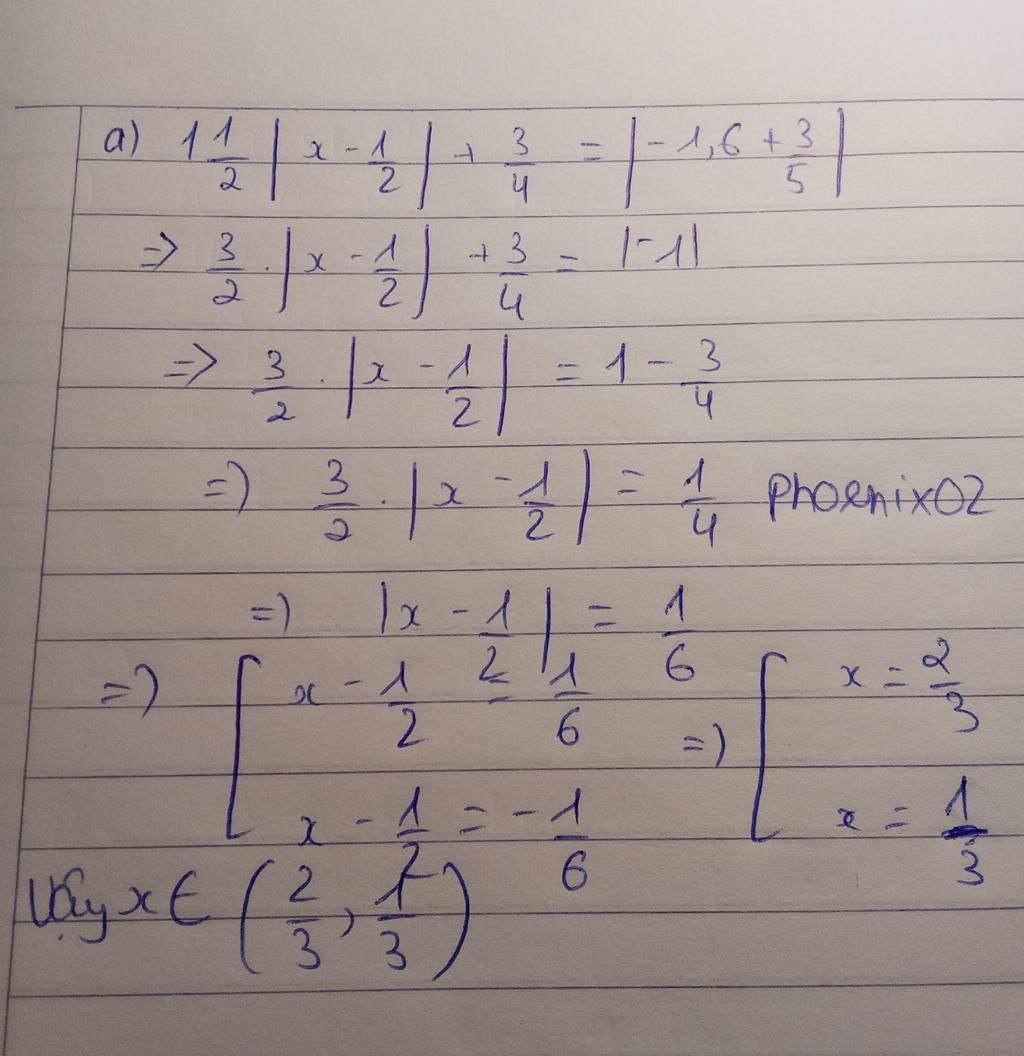 a) 1 1/2 | x - 1/2 | + 3/4 = | -1,6 + 3/5 |
=> 3/2 . | x - 1/2 | + 3/4 = |-1|
=> 3/2 . | x - 1/2 | = 1 - 3/4
=) 3/2 . | x - 1/2 | = 1/4 PhoenixOZ
=) | x - 1/2 | = 1/6
=) [ x - 1/2 = 1/6 =) [ x = 2/3
x - 1/2 = -1/6 x = 1/3
Vậy x ∈ ( 2/3 , 1/3 )